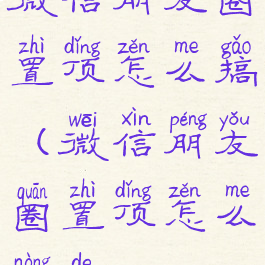 微信朋友圈
zhì dǐng zěn me gǎo
置顶怎么搞
wēi xìn péng yǒu
（微信朋友
quān zhì dǐng zěn me
圈置顶怎么
nòng de